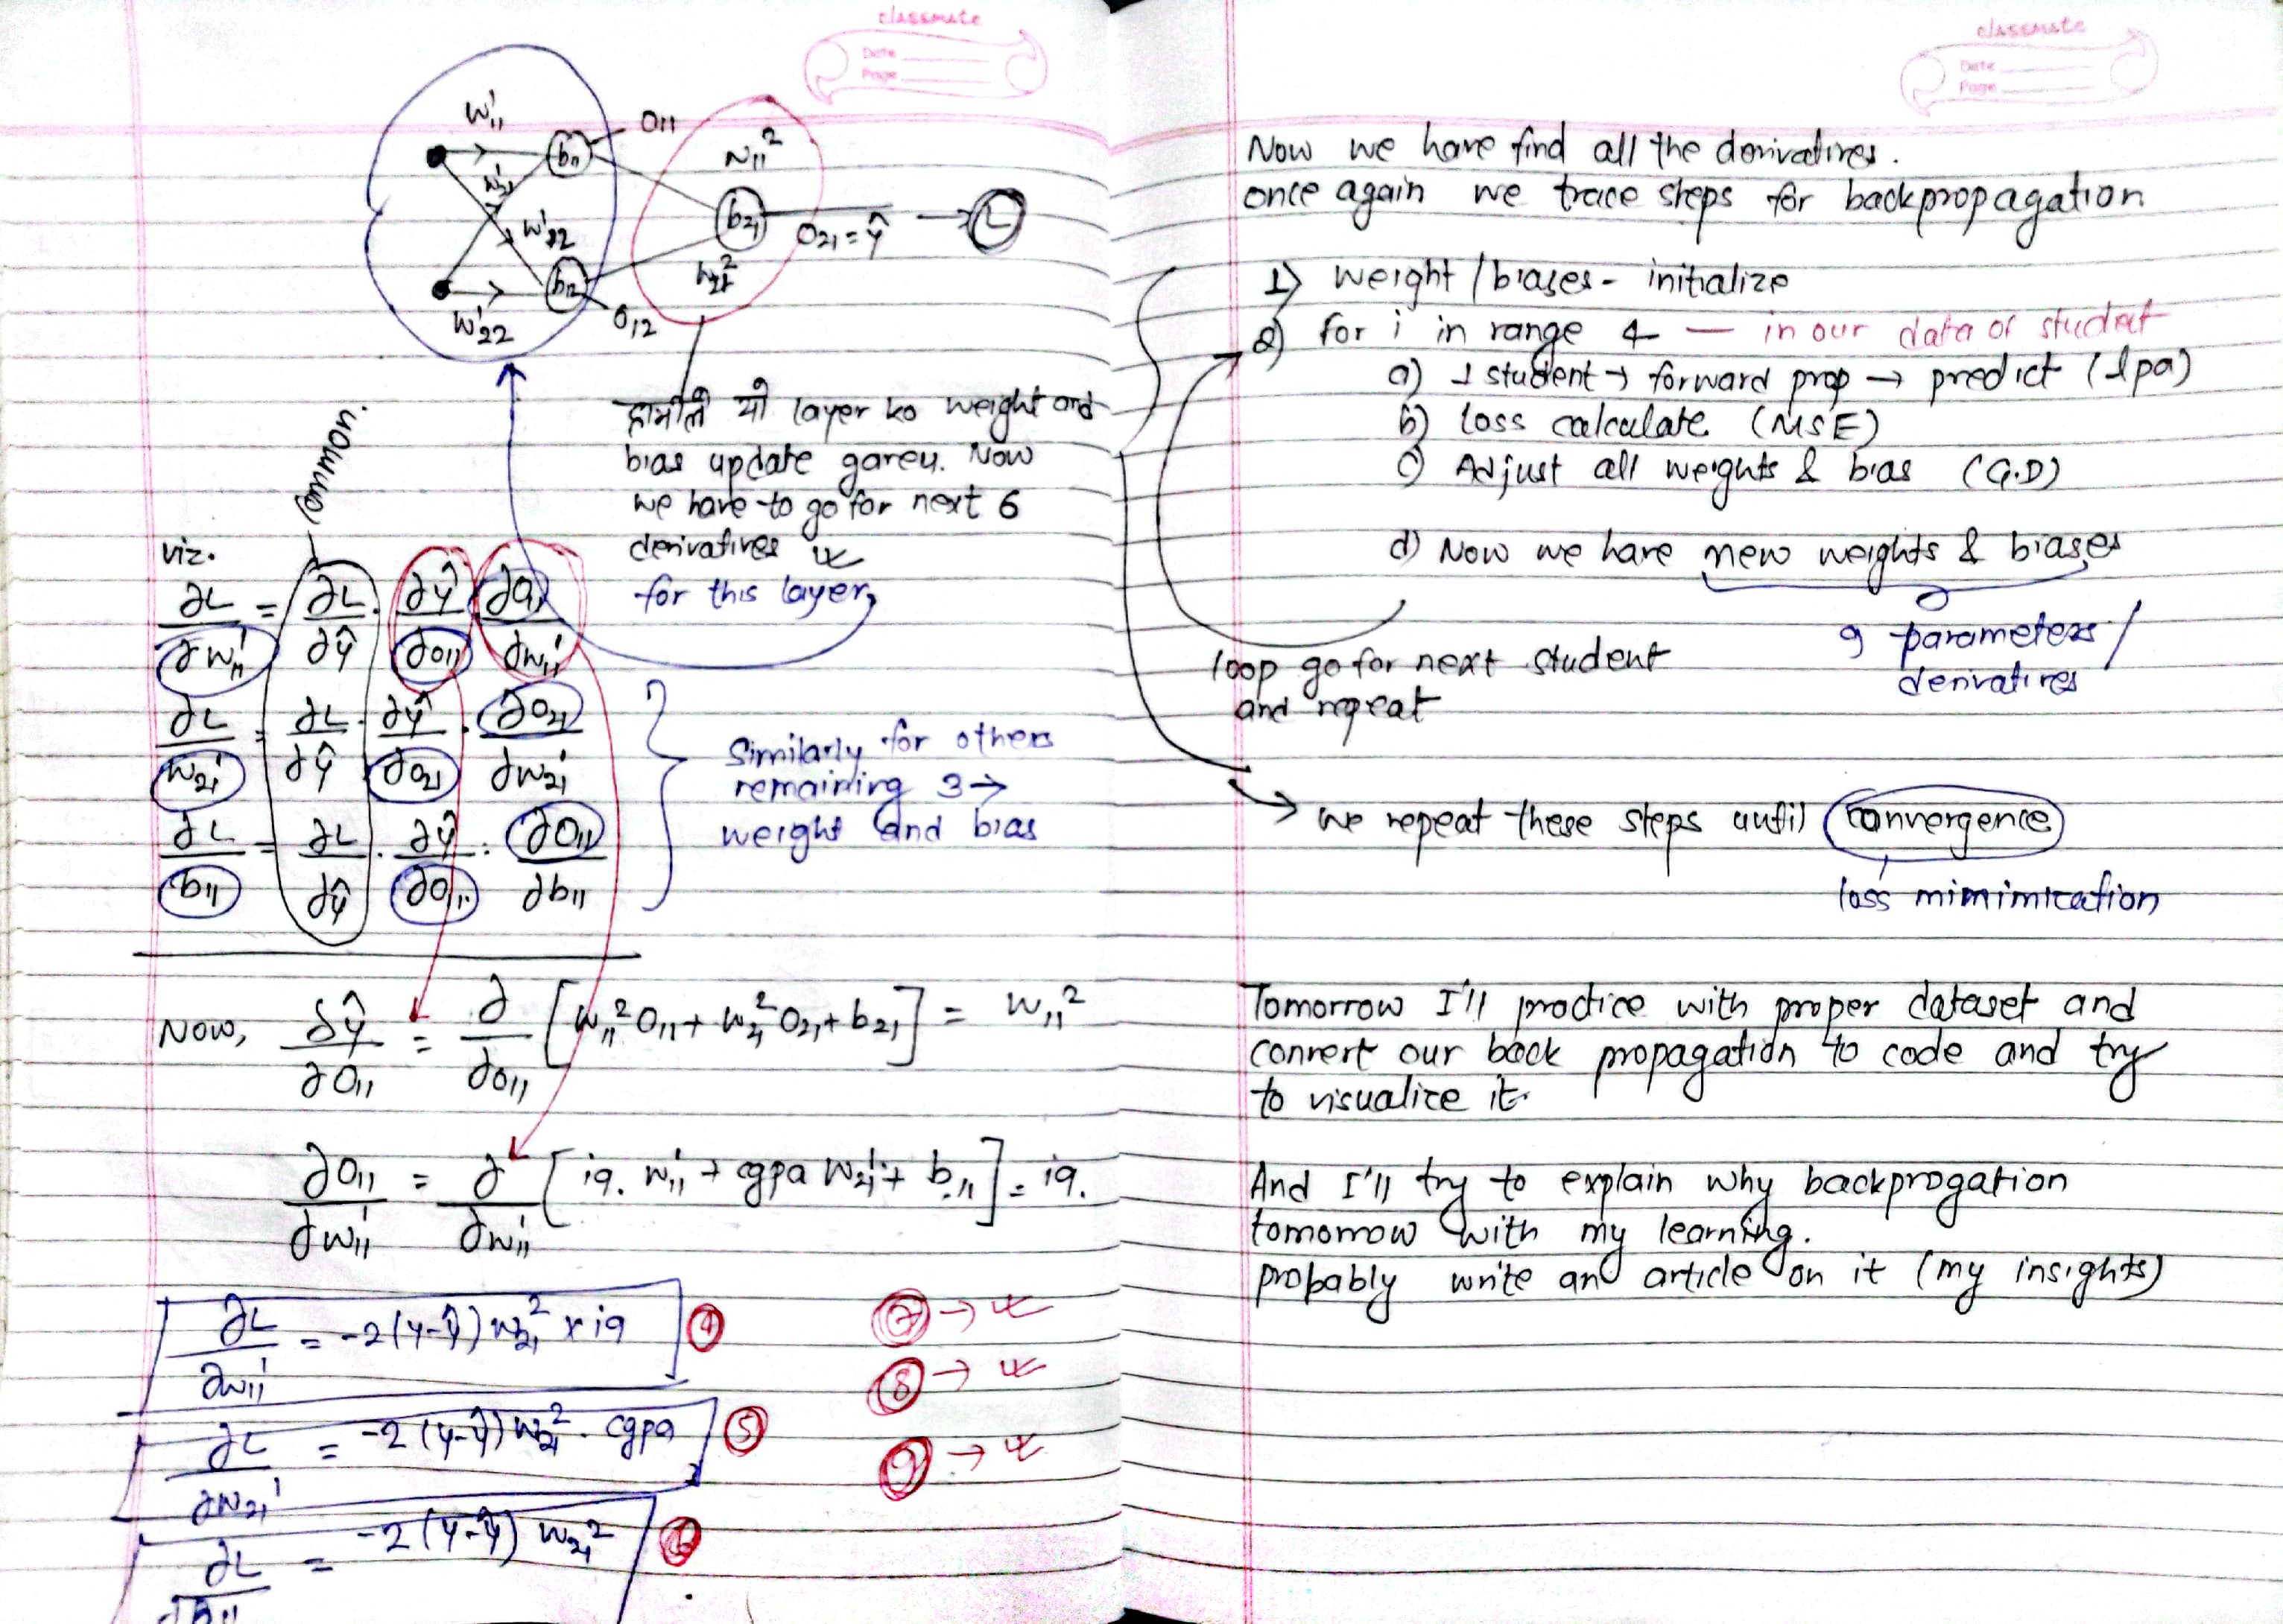 classmate
Date
Page
w¹₁₁
b₁₁
O₁₁
w¹₂₁
w¹₂₂
b₁₂
w¹₂₂
O₁₂
w₁₁²
b₂₁
w₂₁²
O₂₁ = ŷ → L
हामीले यो layer ko weight and
bias update gareu. Now
we have to go for next 6
derivatives
for this layer,
common.
viz.
∂L/∂w¹₁₁ = ∂L/∂ŷ · ∂ŷ/∂O₁₁ · ∂O₁₁/∂w¹₁₁
∂L/w₂₁¹ = ∂L/∂ŷ · ∂ŷ/∂O₂₁ · ∂O₂₁/∂w₂₁¹
∂L/b₁₁ = ∂L/∂ŷ · ∂ŷ/∂O₁₁ · ∂O₁₁/∂b₁₁
Similarly for others
remaining 3 →
weight and bias
Now, ∂ŷ/∂O₁₁ = ∂/∂O₁₁ [w₁₁² O₁₁ + w₂₁² O₂₁ + b₂₁] = w₁₁²
∂O₁₁/∂w¹₁₁ = ∂/∂w¹₁₁ [iq. w¹₁₁ + cgpa w¹₂₁ + b₁₁] = iq.
∂L/∂w₁₁¹ = -2(y-ŷ) w₂₁² x iq ④
∂L/∂w₂₁¹ = -2(y-ŷ) w₂₁² . cgpa ⑤
∂L/∂b₁₁ = -2(y-ŷ) w₂₁² ⑥
⑦ →
⑧ →
⑨ →
classmate
Date
Page
Now we have find all the derivatives.
once again we trace steps for backpropagation
1) weight / biases - initialize
2) for i in range 4 — in our data of student
a) 1 student → forward prop → predict (lpa)
b) loss calculate (MSE)
c) Adjust all weights & bias (G.D)
d) Now we have new weights & biases
9 parameters /
derivatives
loop go for next student
and repeat
→ we repeat these steps until convergence
loss mimimization
Tomorrow I'll practice with proper dataset and
convert our back propagation to code and try
to visualize it.
And I'll try to explain why backprogation
tomorrow with my learning.
probably write and article on it (my insights)